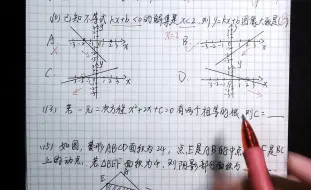 已知不等式kx+b<0的解集是x<2,则y=kx+b图象大致是( )
A.
x=2
B.
C.
D.
(13) 若一元二次方程x²+2x+C=0有两个相等的根,则C=
(15) 如图,菱形ABCD面积为24,点E是AB的中点,F是BC
上的动点,若△BEF面积为4,则阴影部分面积为
E